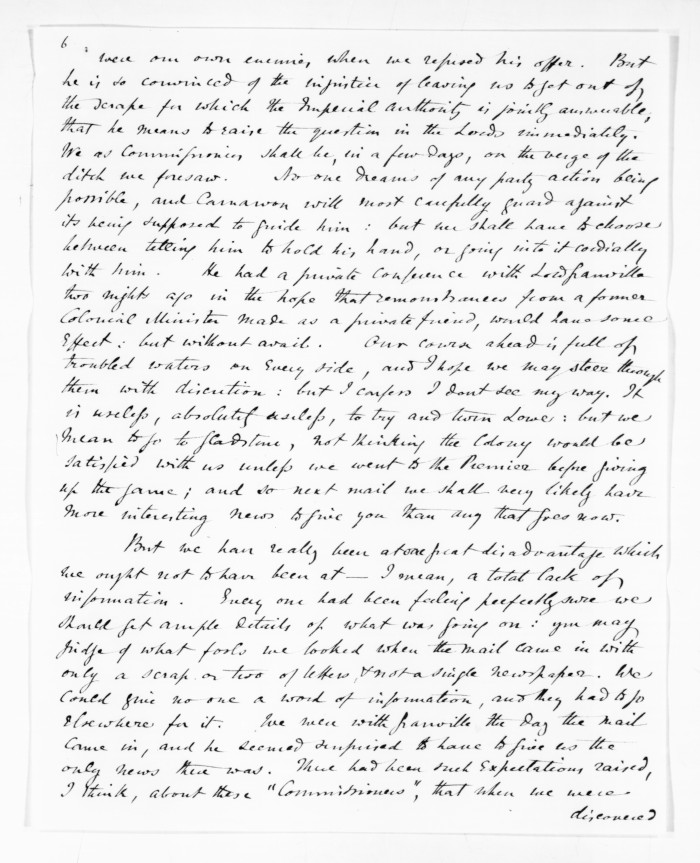 6
were our own enemies, when we refused his offer. But
he is so convinced of the injustice of leaving us to get out of
the scrape for which the Imperial Authority is jointly answerable,
that he means to raise the question in the Lords immediately.
We as Commissioners shall be, in a few days, on the verge of the
ditch we foresaw. No one dreams of any party action being
possible, and Carnarvon will most carefully guard against
its being supposed to guide him: but we shall have to choose
between telling him to hold his hand, or going into it cordially
with him. He had a private conference with Lord Granville
two nights ago in the hope that remonstrances from a former
Colonial Minister made as a private friend, would have some
Effect: but without avail. Our course ahead is full of
troubled waters on every side, and I hope we may steer through
them with discretion: but I confess I dont see my way. It
is useless, absolutely useless, to try and turn Lowe: but we
mean to go to Gladstone, not thinking the Colony would be
satisfied with us unless we went to the Premier before giving
up the game; and so next mail we shall very likely have
more interesting news to give you than any that goes now.
But we have really been at great disadvantage which
we ought not to have been at — I mean, a total lack of
information. Every one had been feeling perfectly sure we
should get ample details of what was going on: you may
judge of what fools we looked when the mail came in with
only a scrap or two of letters & not a single newspaper. We
could give no one a word of information, and they had to go
elsewhere for it. We were with Granville the day the mail
came in, and he seemed surprised to have to give us the
only news there was. There had been such Expectations raised,
I think, about these "Commissioners", that when we were
discovered